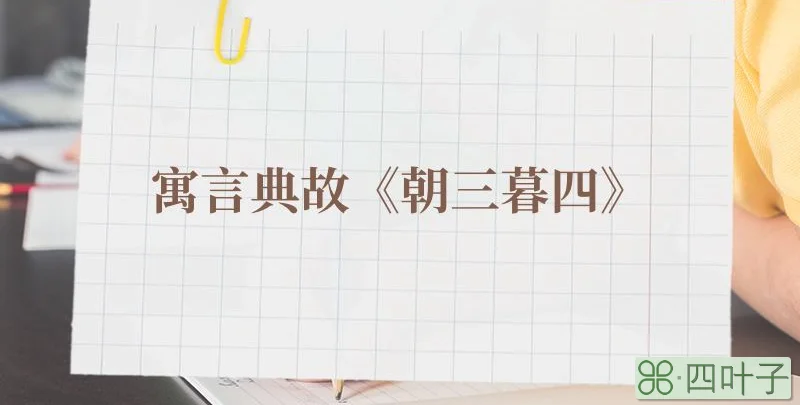 寓言典故《朝三暮四》
四叶子